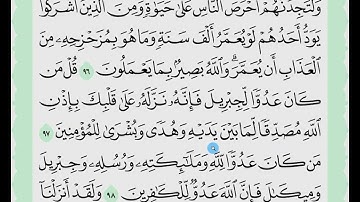 وَلَتَجِدَنَّهُمْ أَحْرَصَ ٱلنَّاسِ عَلَىٰ حَيَوٰةٍ وَمِنَ ٱلَّذِينَ أَشْرَكُوا۟
يَوَدُّ أَحَدُهُمْ لَوْ يُعَمَّرُ أَلْفَ سَنَةٍ وَمَا هُوَ بِمُزَحْزِحِهِۦ مِنَ
ٱلْعَذَابِ أَن يُعَمَّرَ ۗ وَٱللَّهُ بَصِيرٌۢ بِمَا يَعْمَلُونَ ٩٦ قُلْ مَن
كَانَ عَدُوًّا لِّجِبْرِيلَ فَإِنَّهُۥ نَزَّلَهُۥ عَلَىٰ قَلْبِكَ بِإِذْنِ
ٱللَّهِ مُصَدِّقًا لِّمَا بَيْنَ يَدَيْهِ وَهُدًى وَبُشْرَىٰ لِلْمُؤْمِنِينَ ٩٧
مَن كَانَ عَدُوًّا لِّلَّهِ وَمَلَـٰٓئِكَتِهِۦ وَرُسُلِهِۦ وَجِبْرِيلَ
وَمِيكَىٰلَ فَإِنَّ ٱللَّهَ عَدُوٌّ لِّلْكَـٰفِرِينَ ٩٨ وَلَقَدْ أَنزَلْنَآ